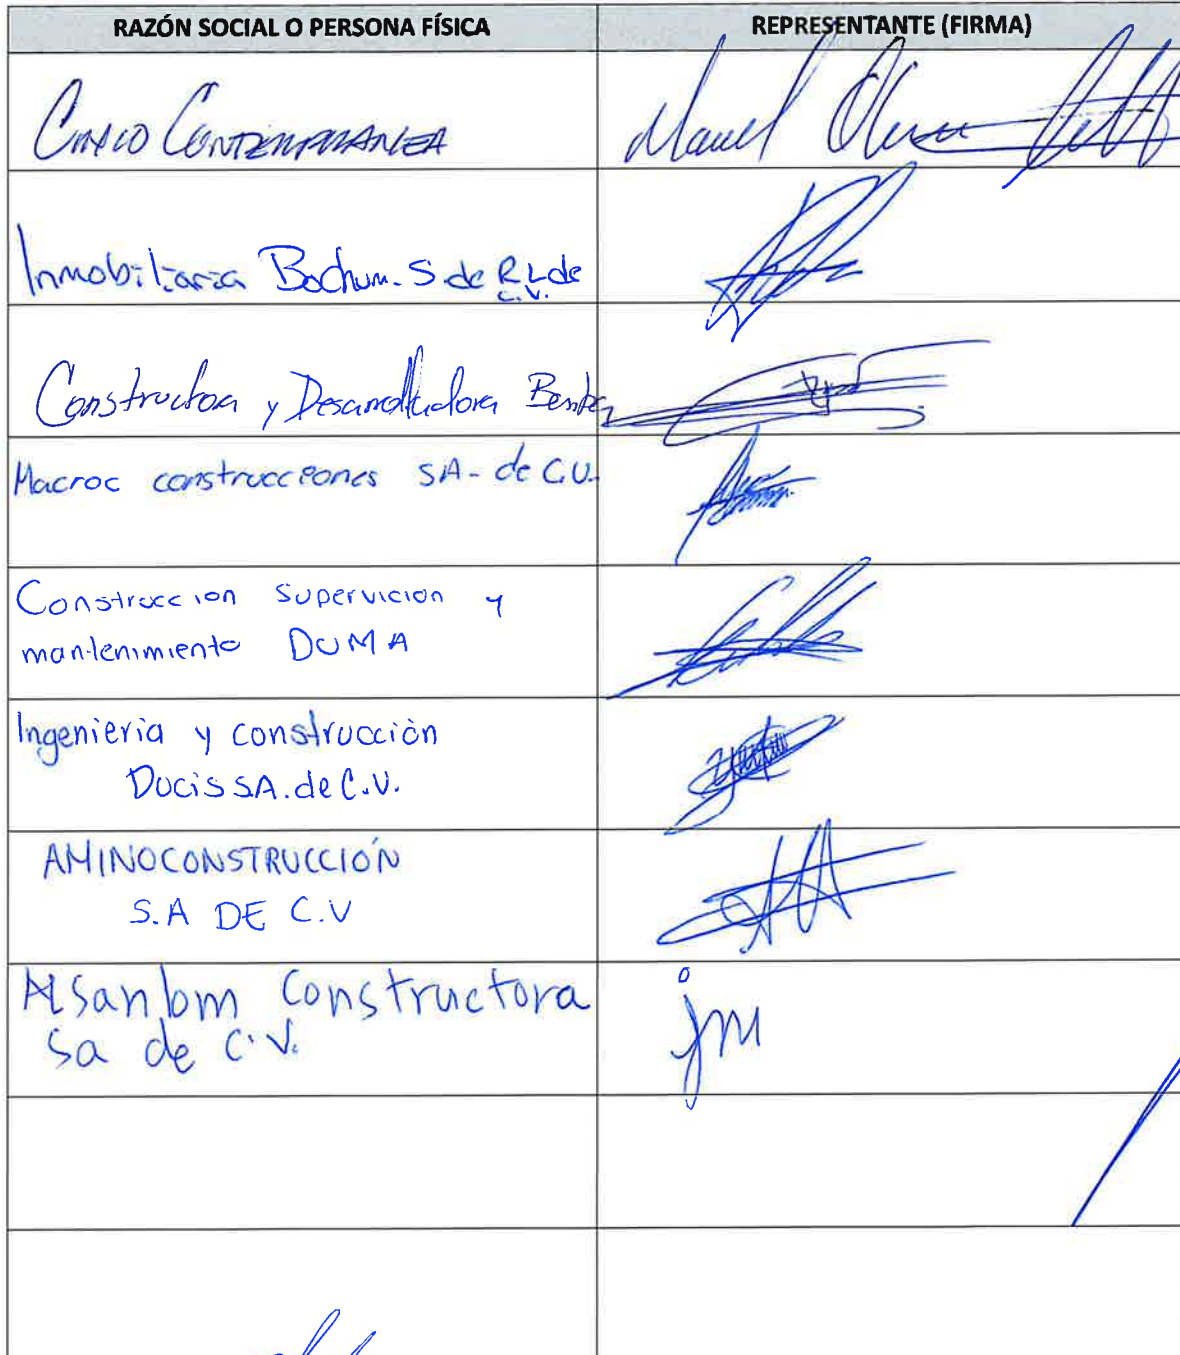 RAZÓN SOCIAL O PERSONA FÍSICA
REPRESENTANTE (FIRMA)
CONTEMPORANEA
Manuel
Inmobiliaria Bochum. S de R L de
C.V.
Constructora y Desarrolladora
Macroc construcciones SA- de C.V.
Construccion Supervicion y
mantenimiento DUMA
Ingenieria y construcción
Docis SA. de C.V.
AMINOCONSTRUCCIÓN
S.A DE C.V
Alsanbm Constructora
Sa de C.V.